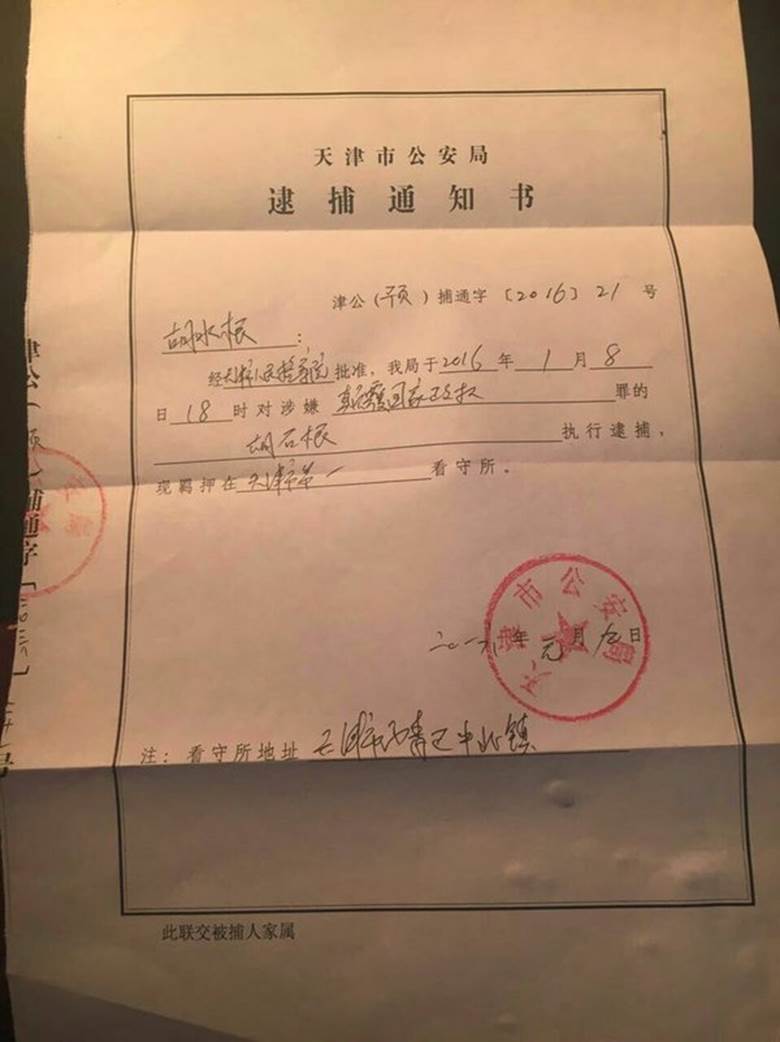 天津市公安局
逮捕通知书
津公（预）捕通字〔2016〕21号
胡水根：
经天津市人民检察院批准，我局于2016年1月8
日18时对涉嫌颠覆国家政权罪的
胡石根执行逮捕，
现羁押在天津市第一看守所。
二〇一六年元月九日
天津市公安局
注：看守所地址 天津市西青区中北镇
此联交被捕人家属
津公（预）捕通字